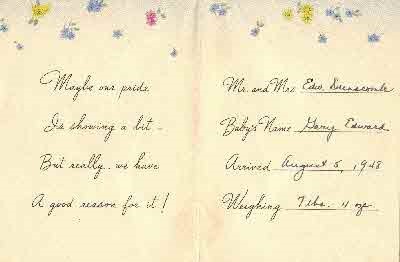 Maybe our pride
Is showing a bit -
But really.. we have
A good reason for it!
Mr. and Mrs. Edw.
Baby's Name Gary Edward
Arrived August 5, 1948
Weighing 7 lbs. 11 oz.